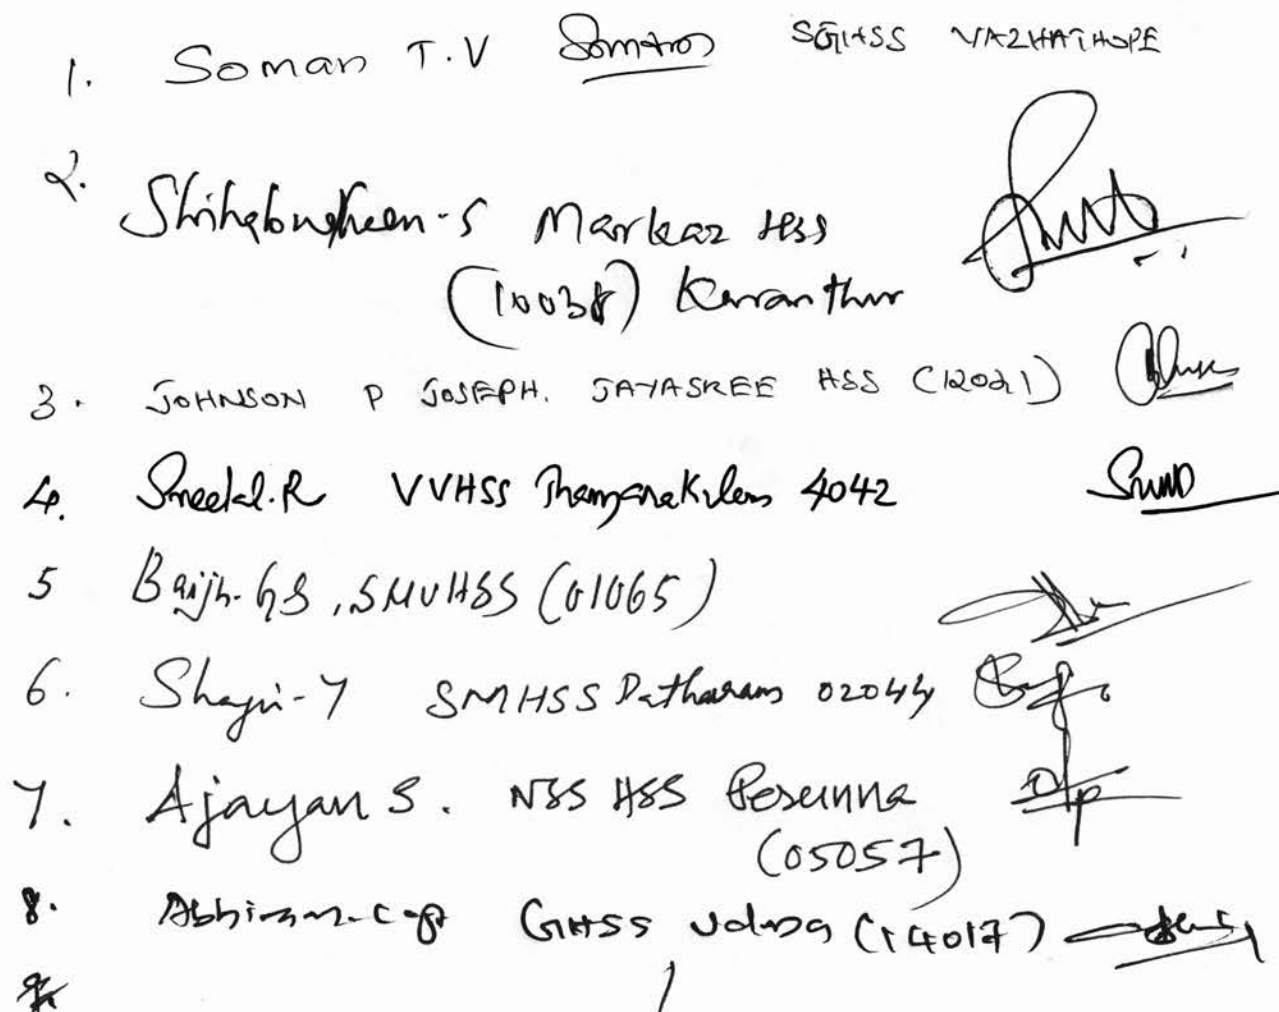 1. Soman T.V SGHSS VAZHATHOPE
2. Shihabudheen-S Markaz HSS
(10038) Karanthur
3. JOHNSON P JOSEPH. JAYASREE HSS (12021)
4. VVHSS 4042
5 Baiju. G S, SMVHSS (01065)
6. Shaji-Y SMHSS Patharam 02044
7. Ajayan S. NSS HSS Perunna
(05057)
8. GHSS (14017)